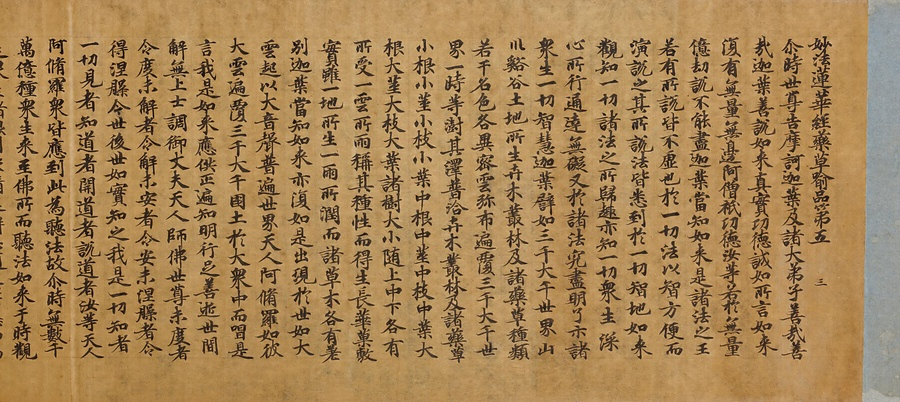 妙法蓮華經藥草喻品第五 三
尒時世尊告摩訶迦葉及諸大弟子善哉善
哉迦葉善說如来真實功德誠如所言如来
復有無量無邊阿僧祇功德汝等若於無量
億劫說不能盡迦葉當知如来是諸法之王
若有所說皆不虛也於一切法以智方便而
演說之其所說法皆悉到於一切智地如来
觀知一切諸法之所歸趣亦知一切衆生深
心所行通達無礙又於諸法究盡明了示諸
衆生一切智慧迦葉譬如三千大千世界山
川谿谷土地所生卉木叢林及諸藥草種類
若干名色各異密雲弥布遍覆三千大千世
界一時等澍其澤普洽卉木叢林及諸藥草
小根小莖小枝小葉中根中莖中枝中葉大
根大莖大枝大葉諸樹大小随上中下各有
所受一雲所雨稱其種性而得生長華菓敷
實雖一地所生一雨所潤而諸草木各有差
別迦葉當知如来亦復如是出現於世如大
雲起以大音聲普遍世界天人阿脩羅如彼
大雲遍覆三千大千國土於大衆中而唱是
言我是如来應供正遍知明行足善逝世間
解無上士調御丈夫天人師佛世尊未度者
令度未解者令解未安者令安未涅槃者令
得涅槃今世後世如實知之我是一切知者
一切見者知道者開道者說道者汝等天人
阿脩羅衆皆應到此為聽法故尒時無數千
萬億種衆生来至佛所而聽法如来于時觀